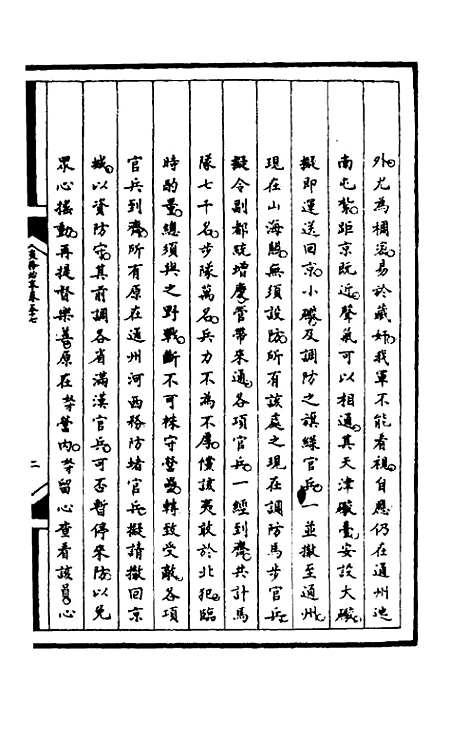 外尤為稠密易於藏奸我軍不能看視自應仍在通州迤
南屯紮距京既近聲氣可以相通其天津礮臺安設大礮
擬即運送回京小礮及調防之旗綠官兵一並撤至通州
現在山海關無須設防所有該處之現在調防馬步官兵
擬令副都統增慶管帶來通各項官兵一經到齊共計馬
隊七千名步隊萬名兵力不為不厚儻該夷敢於北犯臨
時酌量總須與之野戰斷不可株守營壘轉致受敵各項
官兵到齊所有原在通州河西務防堵官兵擬請撤回京
城以資防守其前調各省滿漢官兵可否暫停來防以免
眾心搖動再提督樂善原在奴才營內奴才留心查看該員心
二